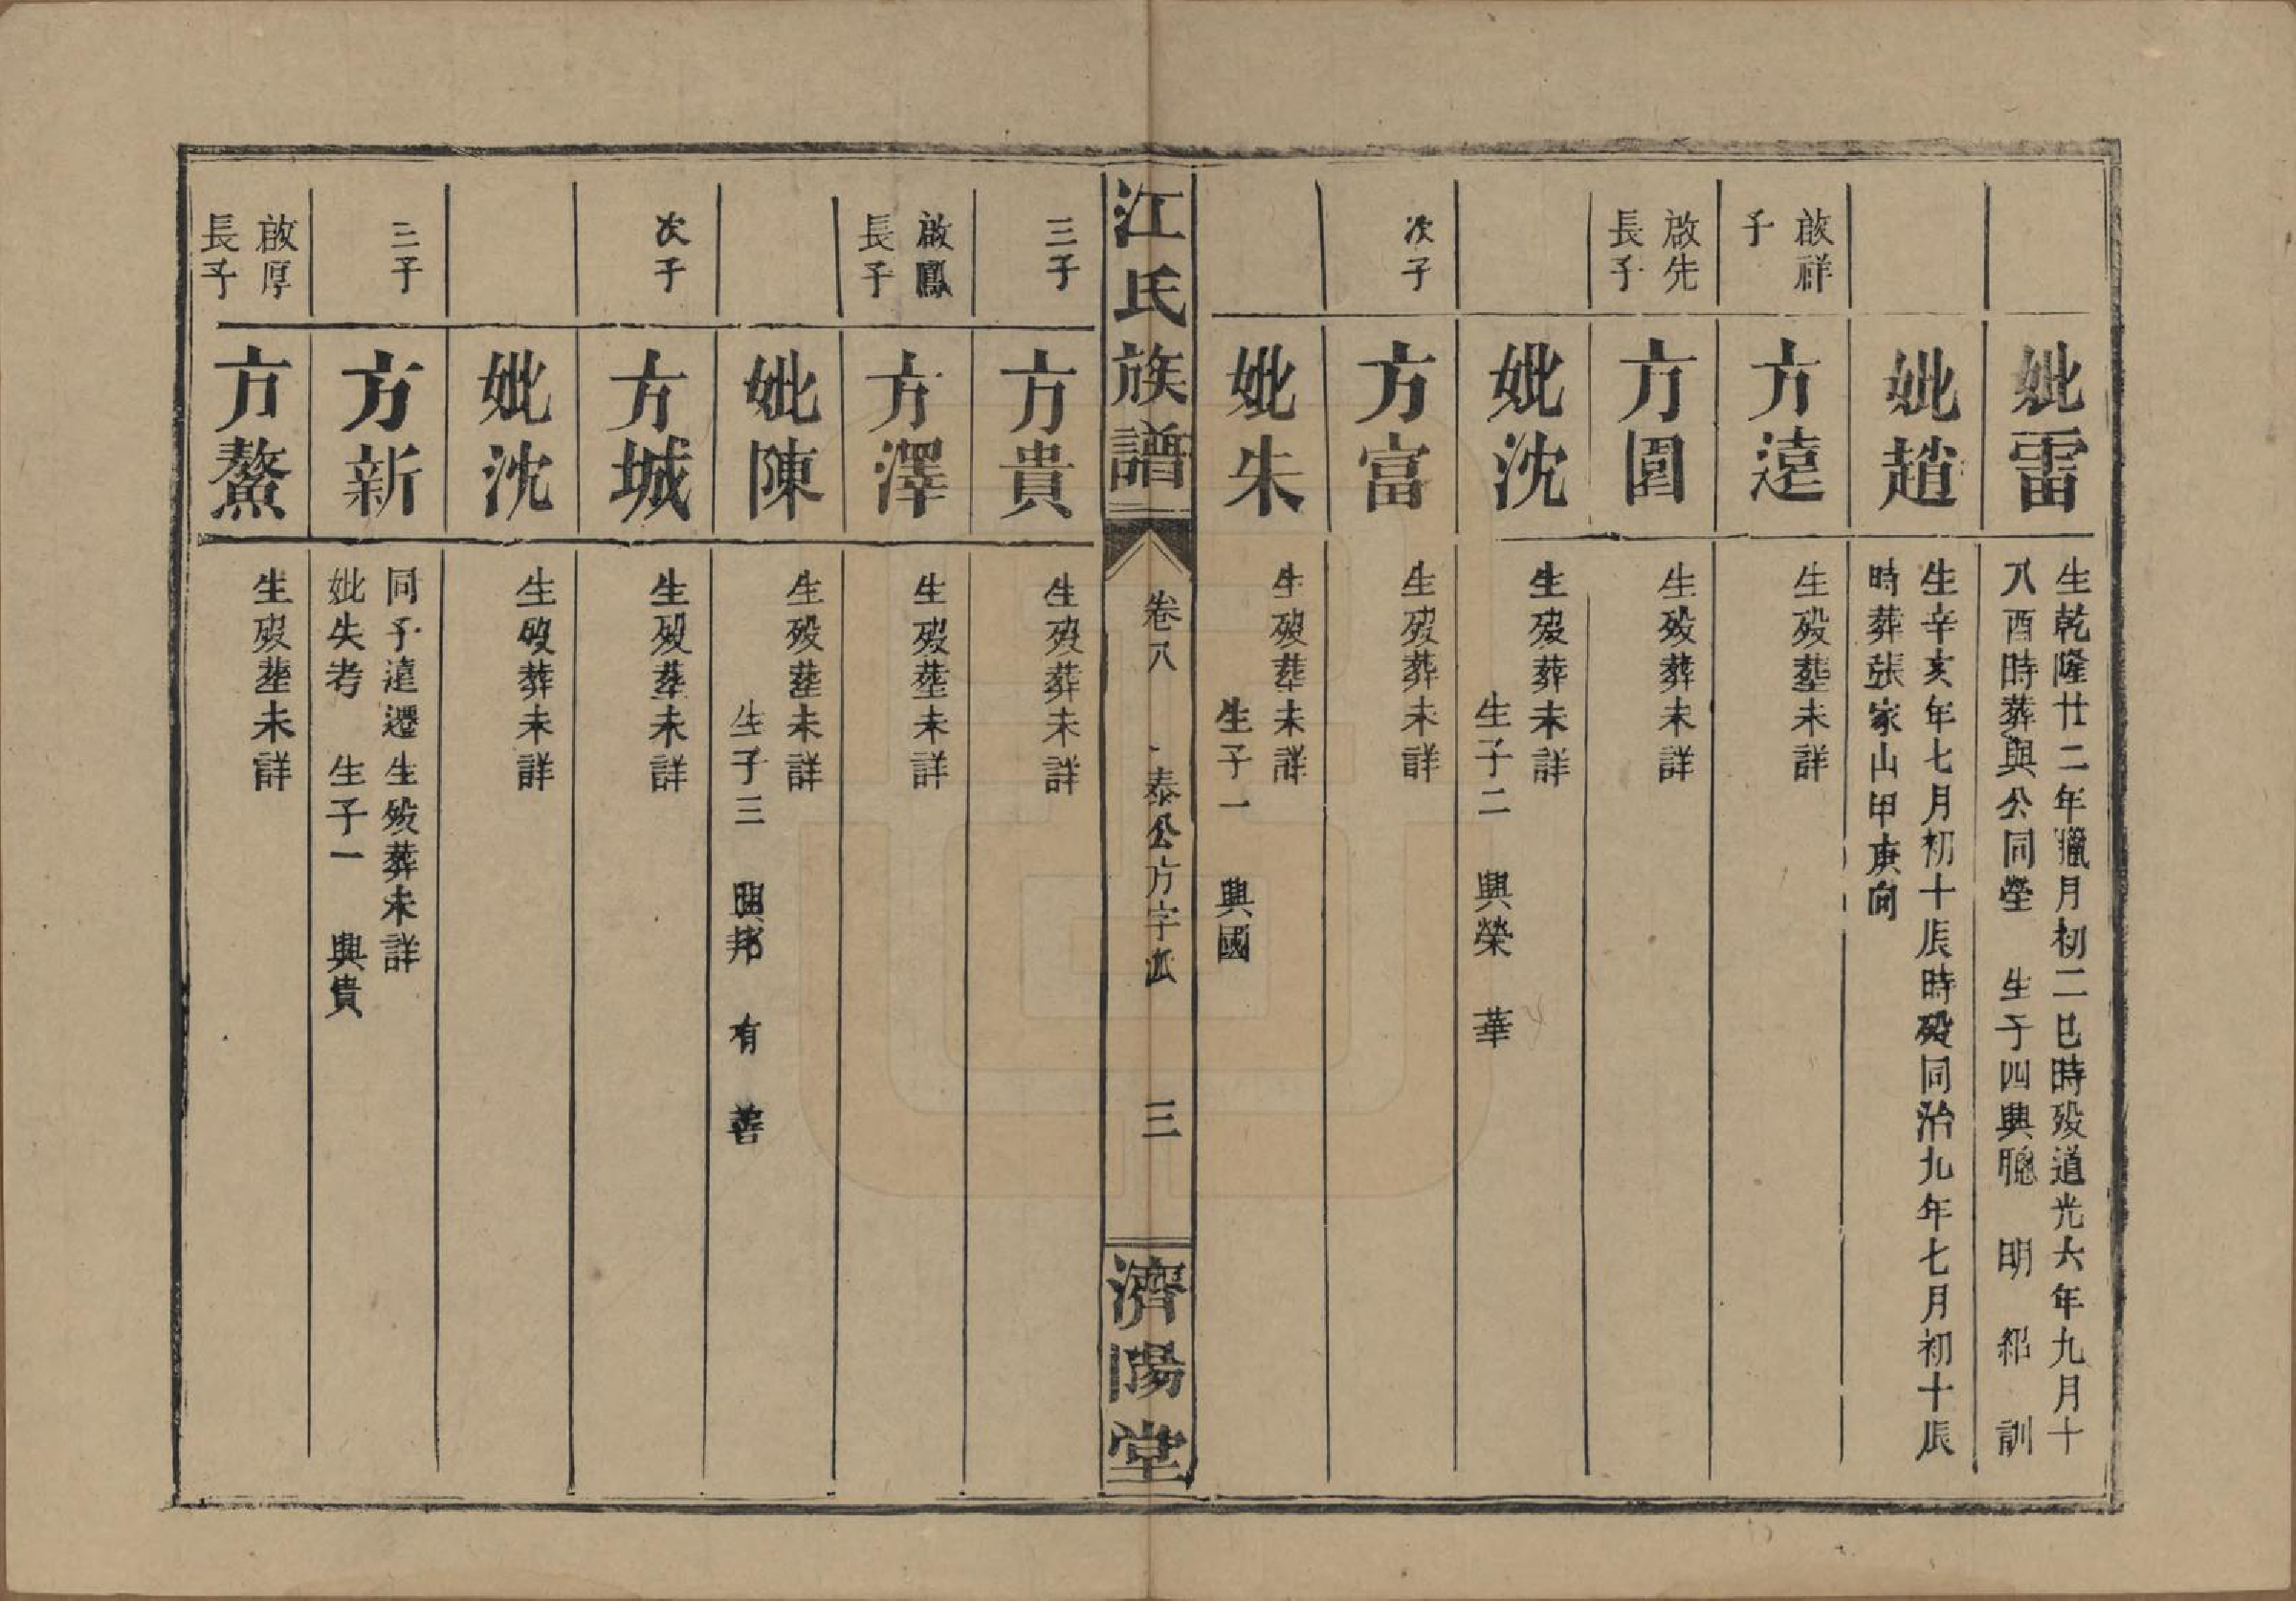 妣雷
生乾隆廿二年臘月初二巳時殁道光六年九月十
八酉時葬與公同塋　生子四興聰　明　紹　訓
妣趙
生辛亥年七月初十辰時殁同治九年七月初十辰
時葬張家山甲庚向
啟祥
子
方遠
生殁葬未詳
啟先
長子
方圓
生殁葬未詳
妣沈
生殁葬未詳
生子二　興榮　華
次子
方富
生殁葬未詳
妣朱
生殁葬未詳
生子一　興國
江氏族譜
卷八　一泰公方字派　三
濟陽堂
三子
方貴
生殁葬未詳
啟鳳
長子
方澤
生殁葬未詳
妣陳
生殁葬未詳
生子三　興邦　有　善
次子
方城
生殁葬未詳
妣沈
生殁葬未詳
三子
方新
同子遠遷生殁葬未詳
妣失考　生子一　興貴
啟厚
長子
方鰲
生殁葬未詳